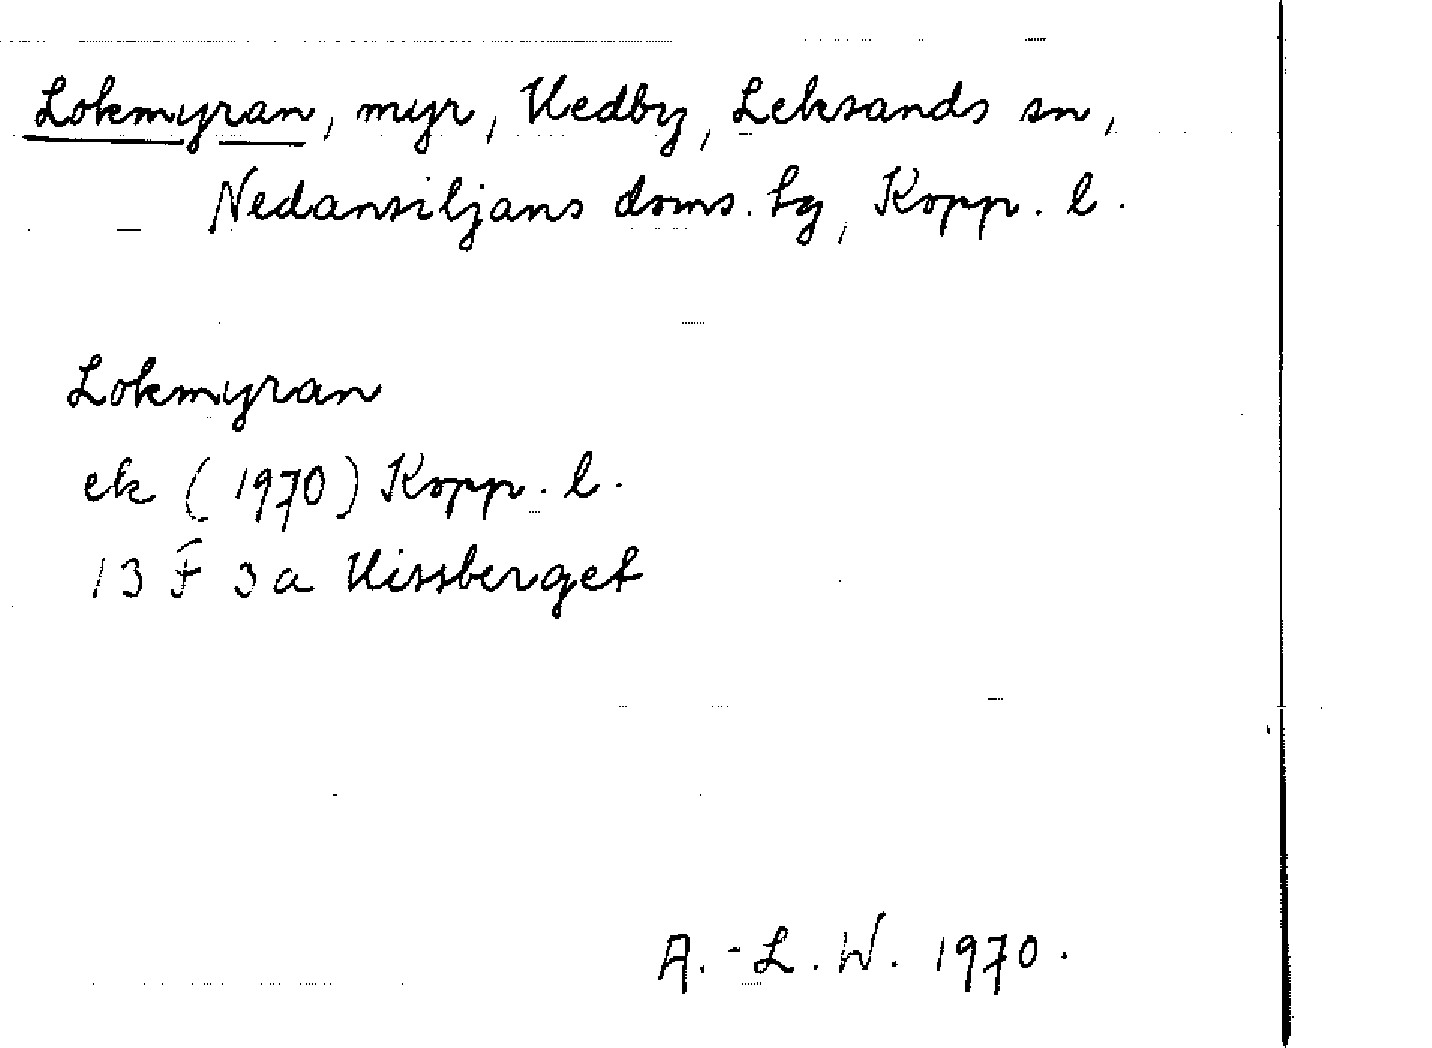 Lokmyran, myr, Hedby, Leksands sn,
Nedansiljans doms. hg, Kopp. l.
Lokmyran
ek (1970) Kopp. l.
13 F 3a Hissberget
A.-L. W. 1970.